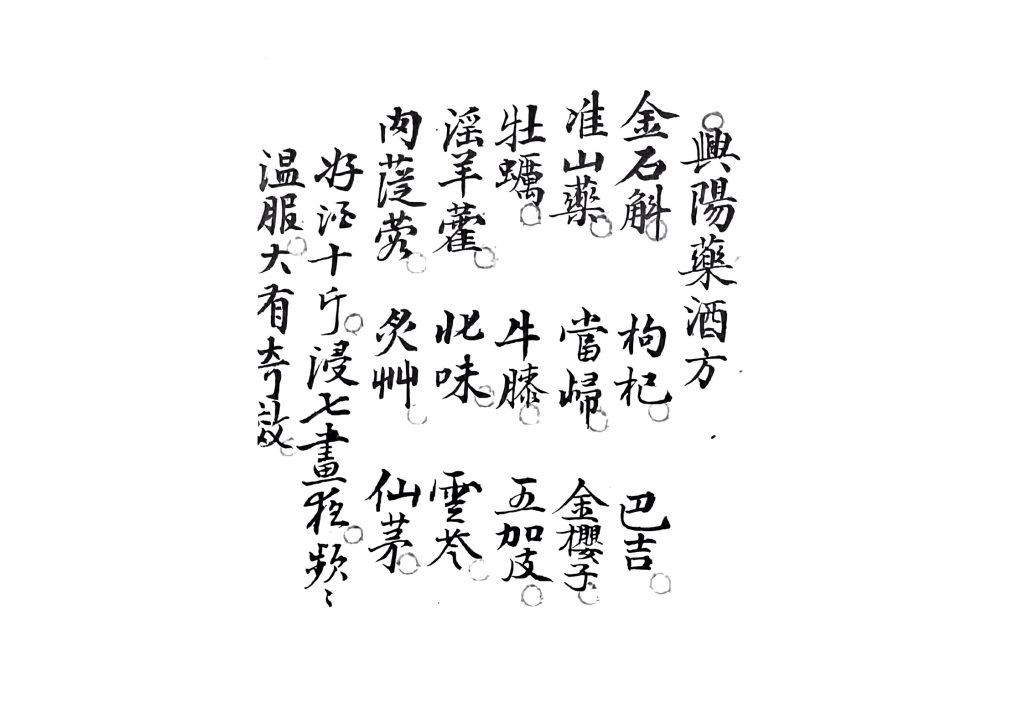 興陽藥酒方
金石斛 枸杞 巴吉
准山藥 當歸 金櫻子
牡蠣 牛膝 五加皮
淫羊藿 北味 雲苓
肉蓯蓉 炙艸 仙茅
好酒十斤浸七晝夜頻〻
溫服大有奇效